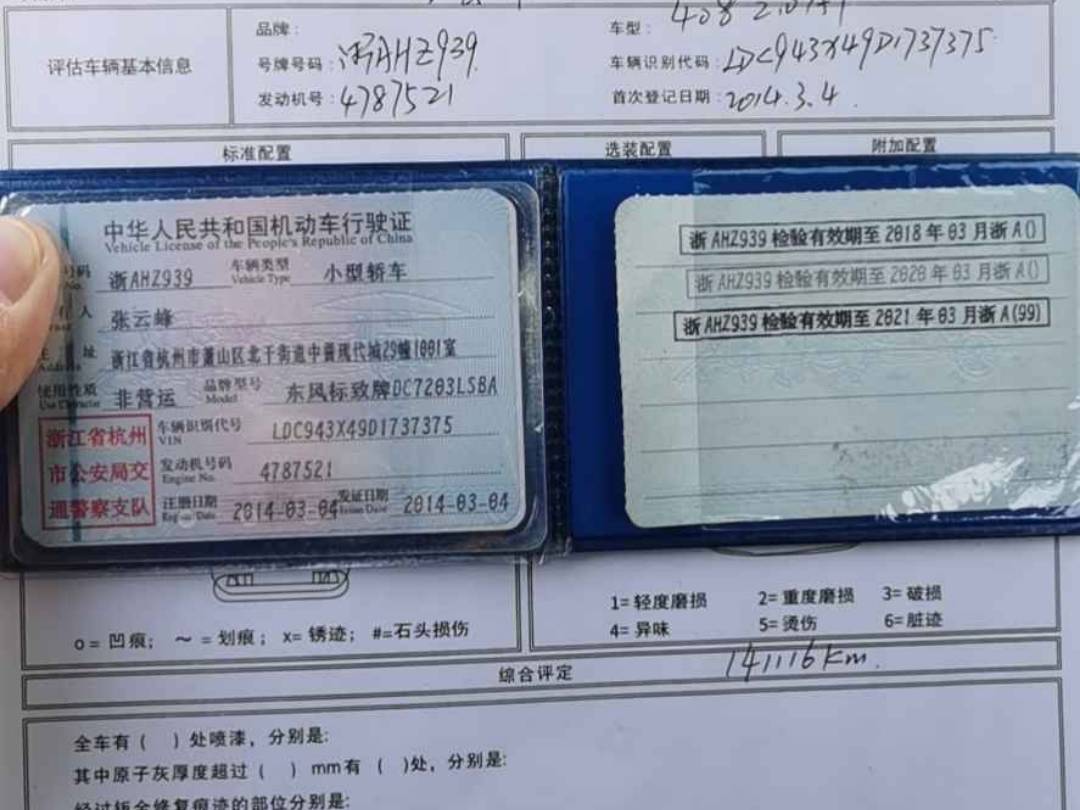 品牌：
车型：408 2.0
评估车辆基本信息
号牌号码：浙AHZ939
车辆识别代码：LDC943X49D1737375
发动机号：4787521
首次登记日期：2014.3.4
标准配置
选装配置
附加配置
中华人民共和国机动车行驶证
Vehicle License of the People's Republic of China
号码 浙AHZ939 车辆类型 Vehicle Type 小型轿车
人 张云峰
址 浙江省杭州市萧山区北干街道中誉现代城29幢1001室
Address
使用性质 Use Character 非营运 品牌型号 Model 东风标致牌DC7203LSBA
浙江省杭州
市公安局交
通警察支队
车辆识别代号 VIN LDC943X49D1737375
发动机号码 Engine No. 4787521
注册日期 Register Date 2014-03-04 发证日期 Issue Date 2014-03-04
浙AHZ939 检验有效期至 2018 年 03 月浙A()
浙AHZ939 检验有效期至 2020 年 03 月浙A()
浙AHZ939 检验有效期至 2021 年 03 月浙A(99)
o = 凹痕； ～ = 划痕； x= 锈迹； #=石头损伤
1= 轻度磨损 2= 重度磨损 3= 破损
4= 异味 5= 烫伤 6= 脏迹
综合评定
141116km.
全车有（ ）处喷漆，分别是:
其中原子灰厚度超过（ ）mm有（ )处，分别是:
经过钣金修复痕迹的部位分别是: